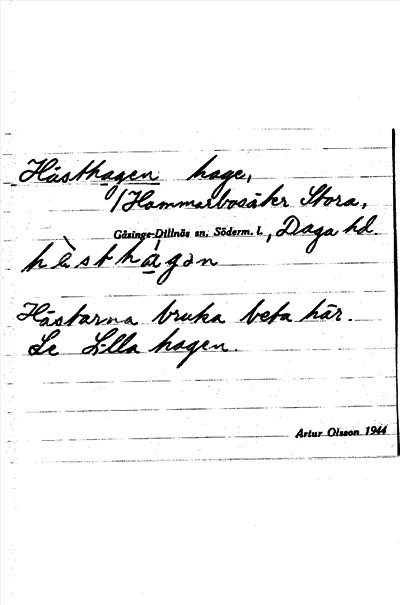 Hästhagen hage,
Hammarbosäter Stora,
Gåsinge-Dillnäs sn, Söderm. l., Daga hd
hὲsthágən
Hästarna bruka beta här.
Se Lilla hagen.
Artur Olsson 1944